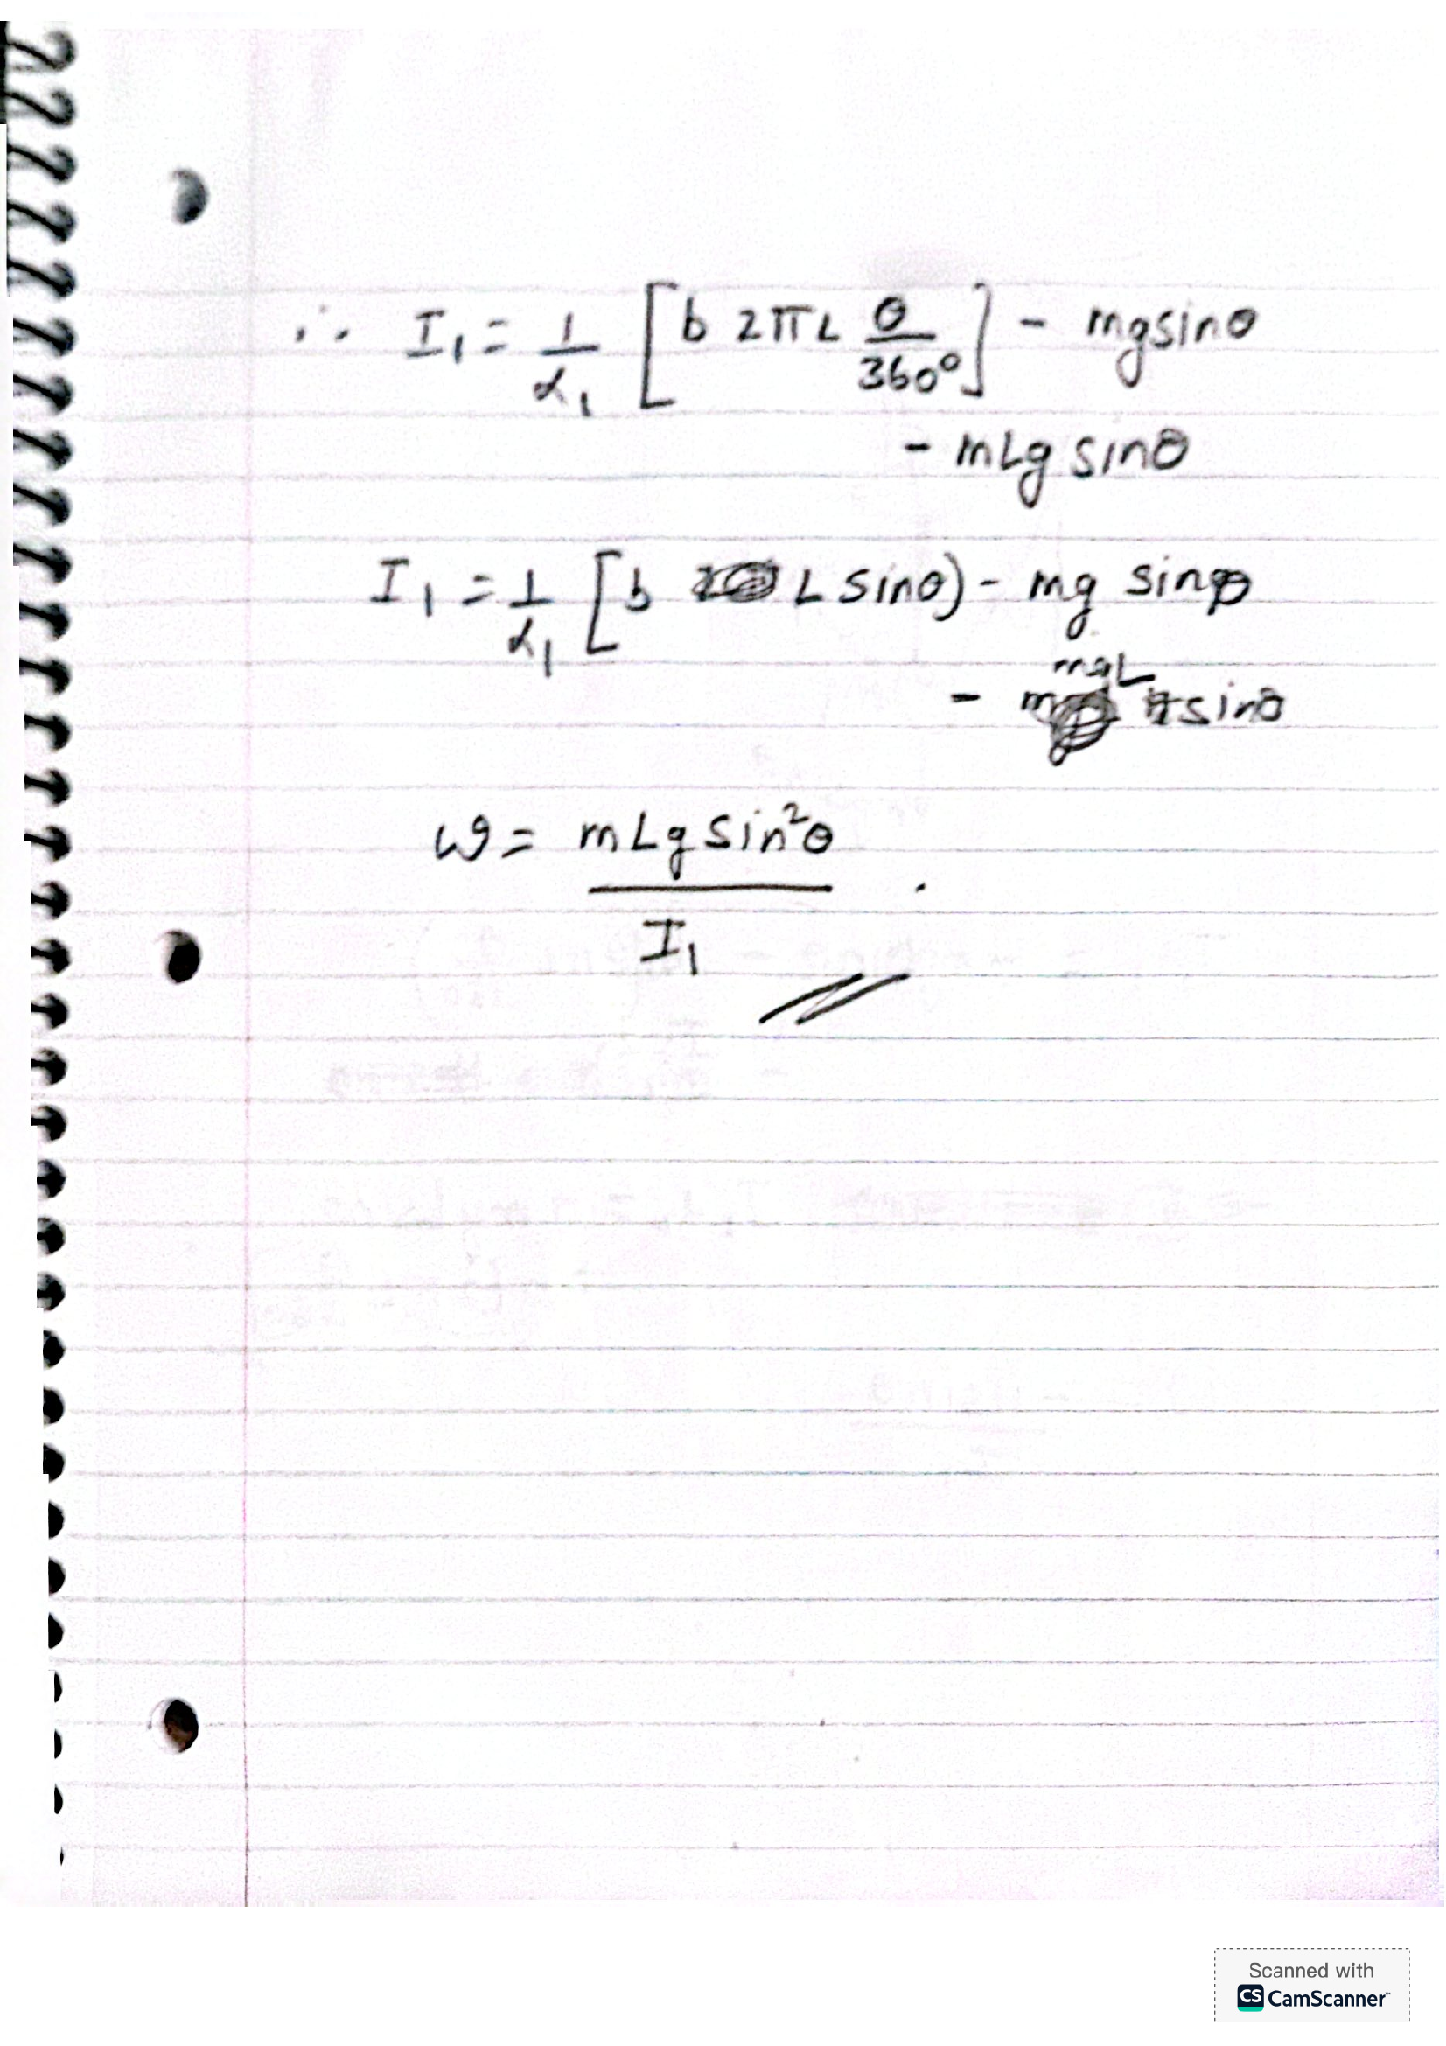 ∴ I₁ = 1/α₁ [b 2πL θ/360°] - mgsinθ
- mLg sinθ
I₁ = 1/α₁ [b L sinθ) - mg sinθ
mgL
- m sinθ
ω = mLg sin²θ / I₁
Scanned with
CS CamScanner